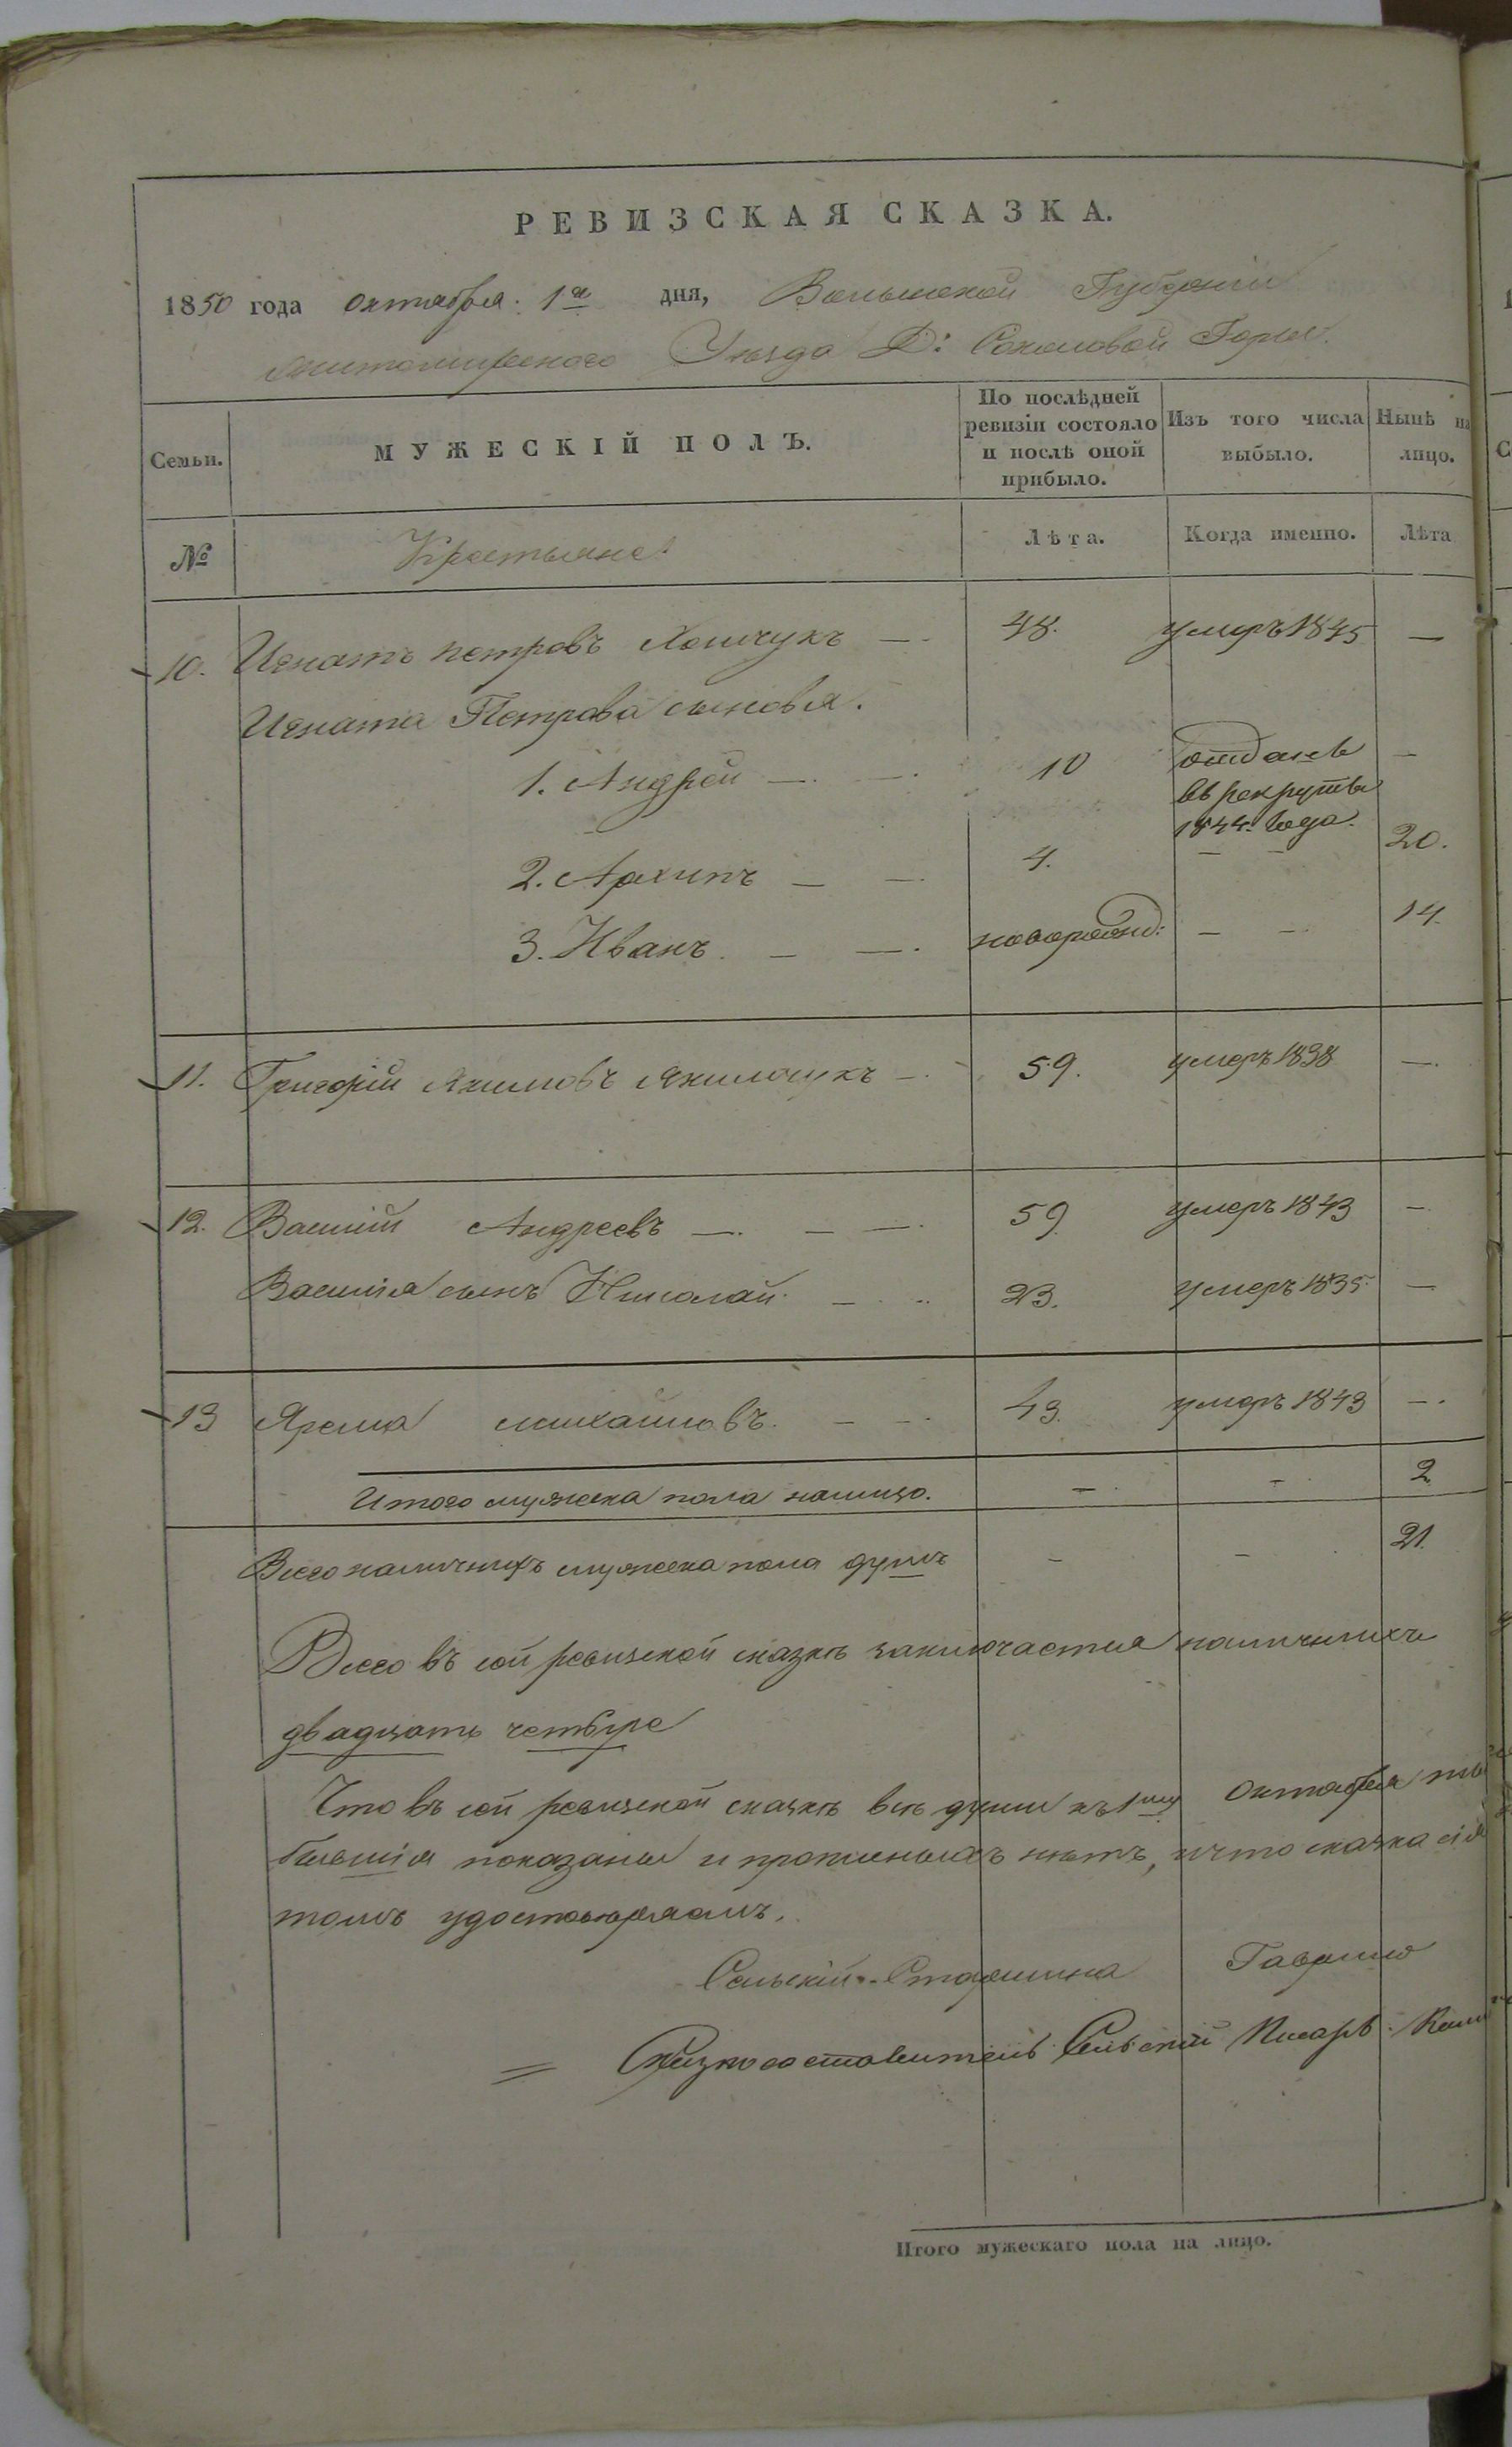 РЕВИЗСКАЯ СКАЗКА.
1850 года октября 1го дня, Волынской Губернiи
Житомирского Уѣзда Д: Соколовой Горы.
Семьи.
МУЖЕСКIЙ ПОЛЪ.
По послѣдней ревизiи состояло и послѣ оной прибыло.
Изъ того числа выбыло.
Нынѣ на лицо.
№ Крестьяне: Лѣта. Когда именно. Лѣта
10. Игнатъ петровъ Хомчукъ — 48. умеръ 1845 —
Игната Петрова сыновья.
1. Андрей — — 10 отданъ въ рекруты 1844. года. —
2. Архипъ — — 4. — — 20.
3. Иванъ. — — новорожд: — — 14.
11. Григорiй Якимовъ Якимчукъ — 59. умеръ 1838 —
12. Василiй Андреевъ — — — 59. умеръ 1843 —
Василiя сынъ Николай — 23. умеръ 1835 —
13 Ярема михайловъ. — — 43. умеръ 1843 —
Итого мужеска пола налицо. — — 2
Всего наличныхъ мужеска пола душъ — — 21.
Всего въ сей ревизской сказкѣ заключается наличныхъ
двадцать четыре
Что въ сей ревизской сказкѣ всѣ души къ 1му Октября
бывшiя показаны и прописныхъ нѣтъ, и что сказка сiя
томъ удостовѣряемъ.
Сельскiй Старшина Гаврило
Сказкосоставитель Сельскiй Писарь
Итого мужескаго пола на лицо.